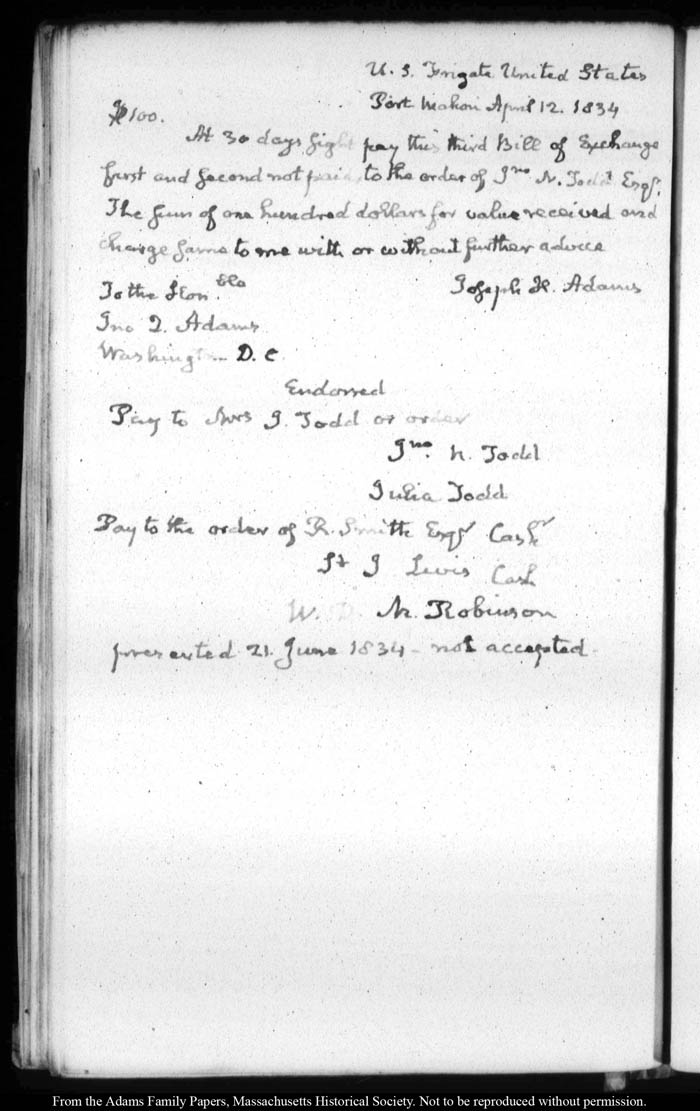 U. S. Frigate United States
Port Mahon April 12. 1834
$100.
At 30 days sight pay this third Bill of Exchange
first and second not paid, to the order of Jno N. Todd Esqr.
The sum of one hundred dollars for value received and
charge same to me with or without further advice
To the Hon. ble
Joseph H. Adams
Jno Q. Adams
Washington D. C
Endorsed
Pay to Mrs J. Todd or order
Jno. N. Todd
Julia Todd
Pay to the order of R. Smith Esqr Cashr
St J Lewis Cash
W. D. M. Robinson
presented 21. June 1834 - not accepted -
From the Adams Family Papers, Massachusetts Historical Society. Not to be reproduced without permission.